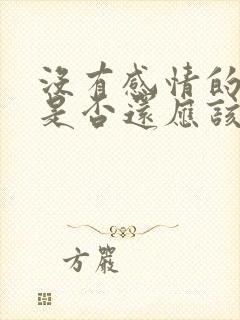 沒有感情的
是否還應該
方嚴